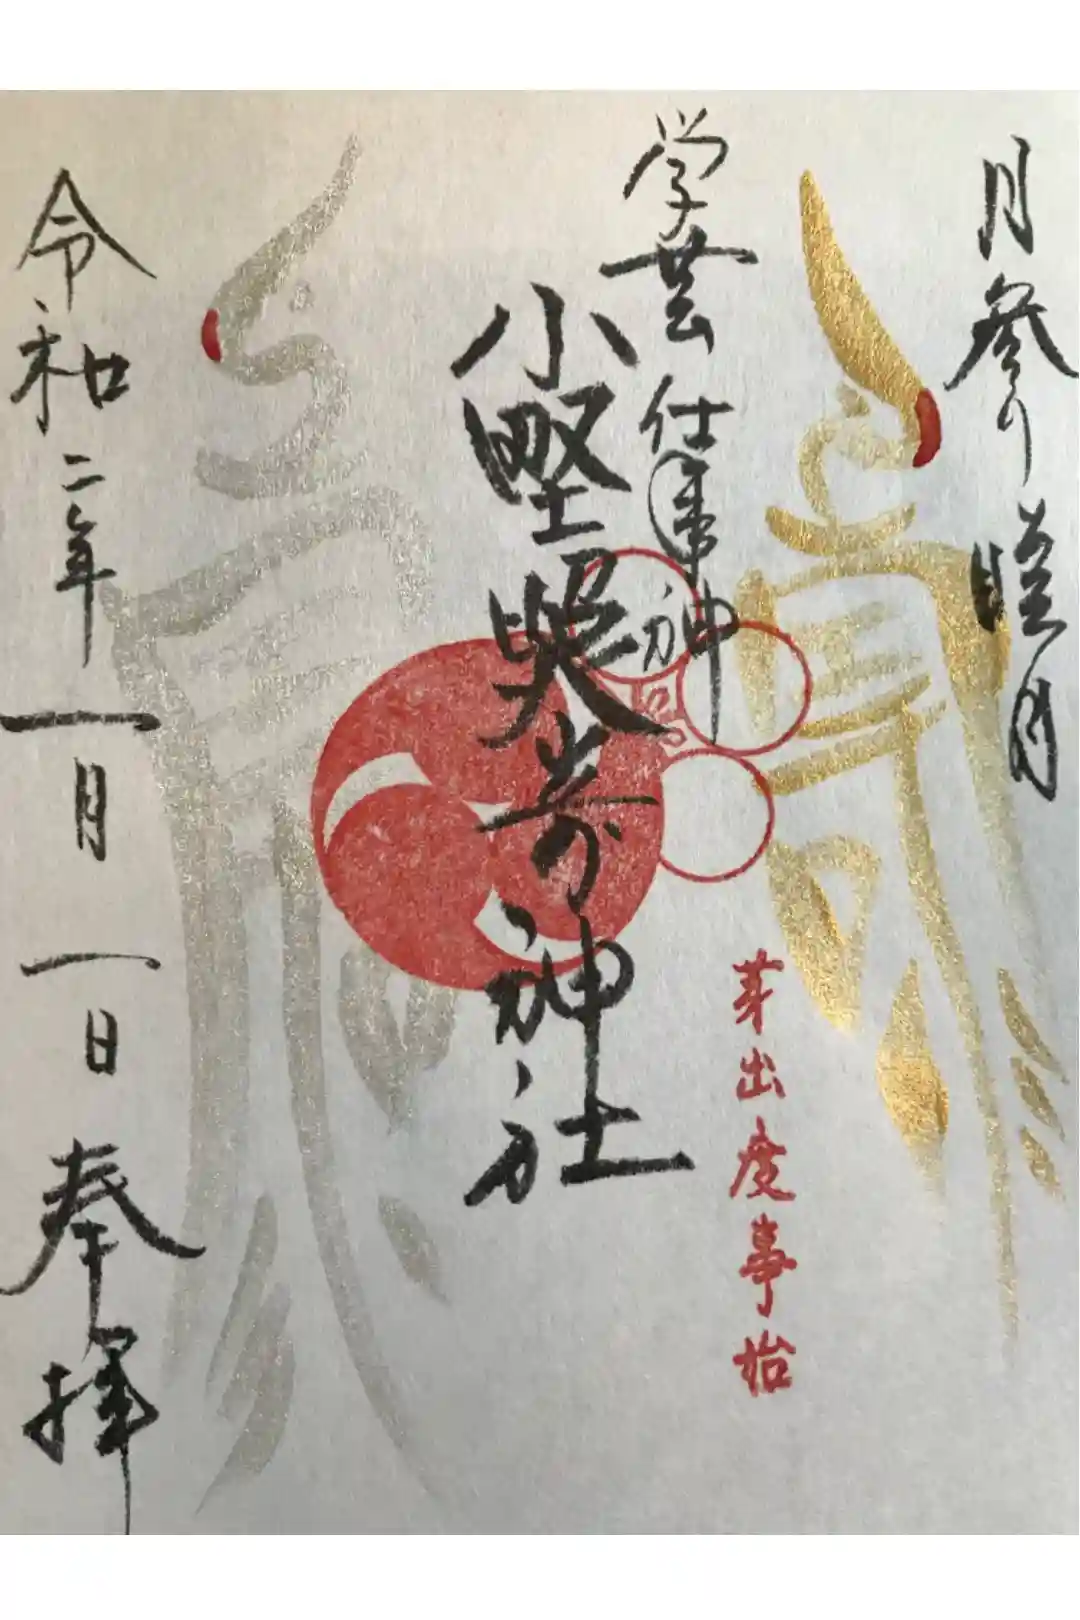 月参り 睦月
学芸 仕事神
芽出度事始
小野照崎神社
令和二年一月一日 奉拝